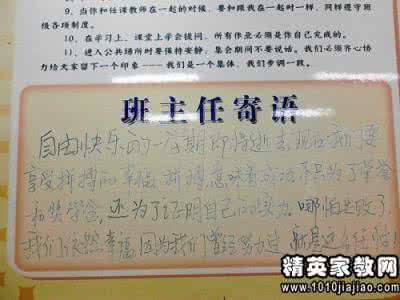 9、当你和任课教师在一起的时候，要和跟我在一起时一样，同样遵守班
级各项制度。
10、在学习上，课堂上学会提问，所有作业必须是你自己完成的。
11、进入公共场所时要保持安静；集会期间不要说话。我们必须齐心协
力给大家留下一个印象——我们是一个集体，我们步调一致。
班主任寄语
自由快乐的一星期即将逝去 现在我们要
享受拼搏的幸福 拼搏意味着成功 不只为了荣誉
和奖学金，还为了证明自己的实力。哪怕失败了
我们依然幸福，因为我们曾经努力过，
精英家教网
www.1010jiajiao.com